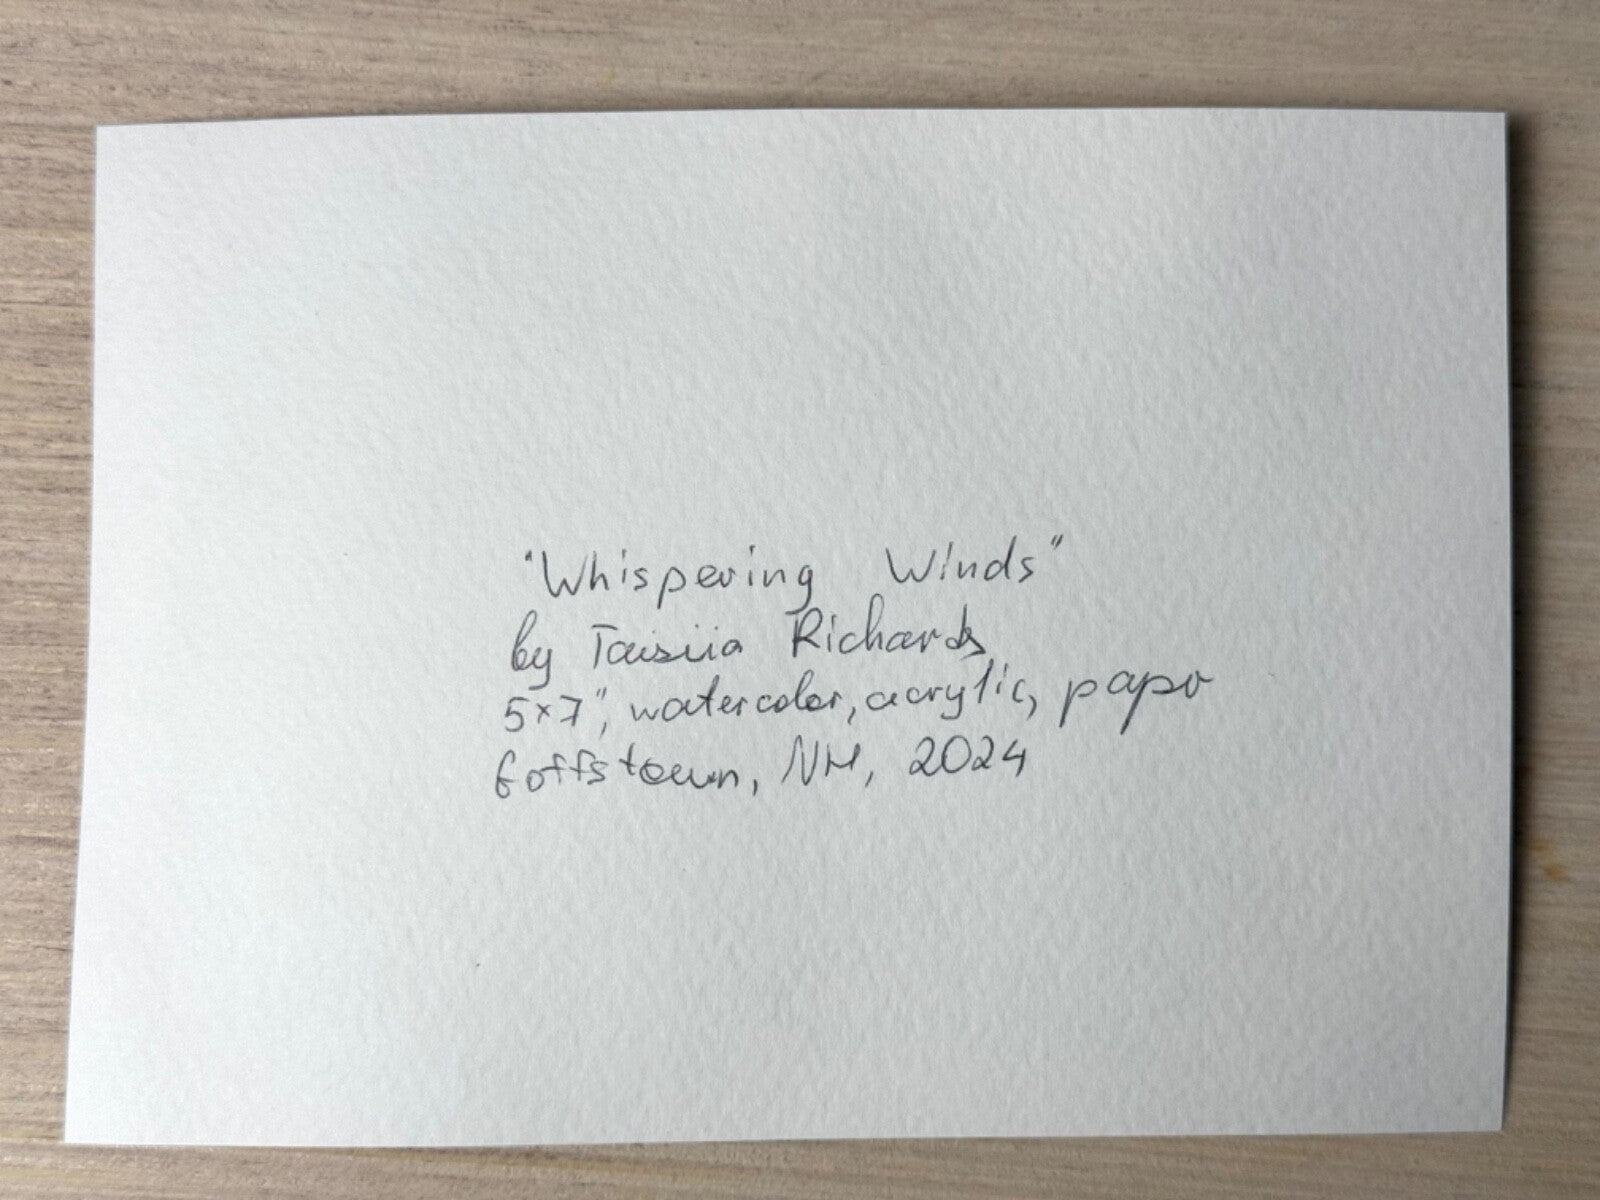 "Whispering Winds"
by Taisiia Richards
5×7", watercolor, acrylic, paper
Goffstown, NH, 2024